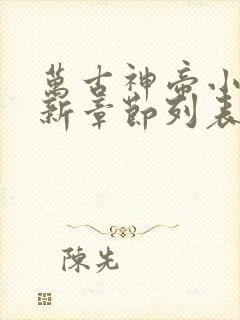 萬古神帝小
新章節列表
陳先